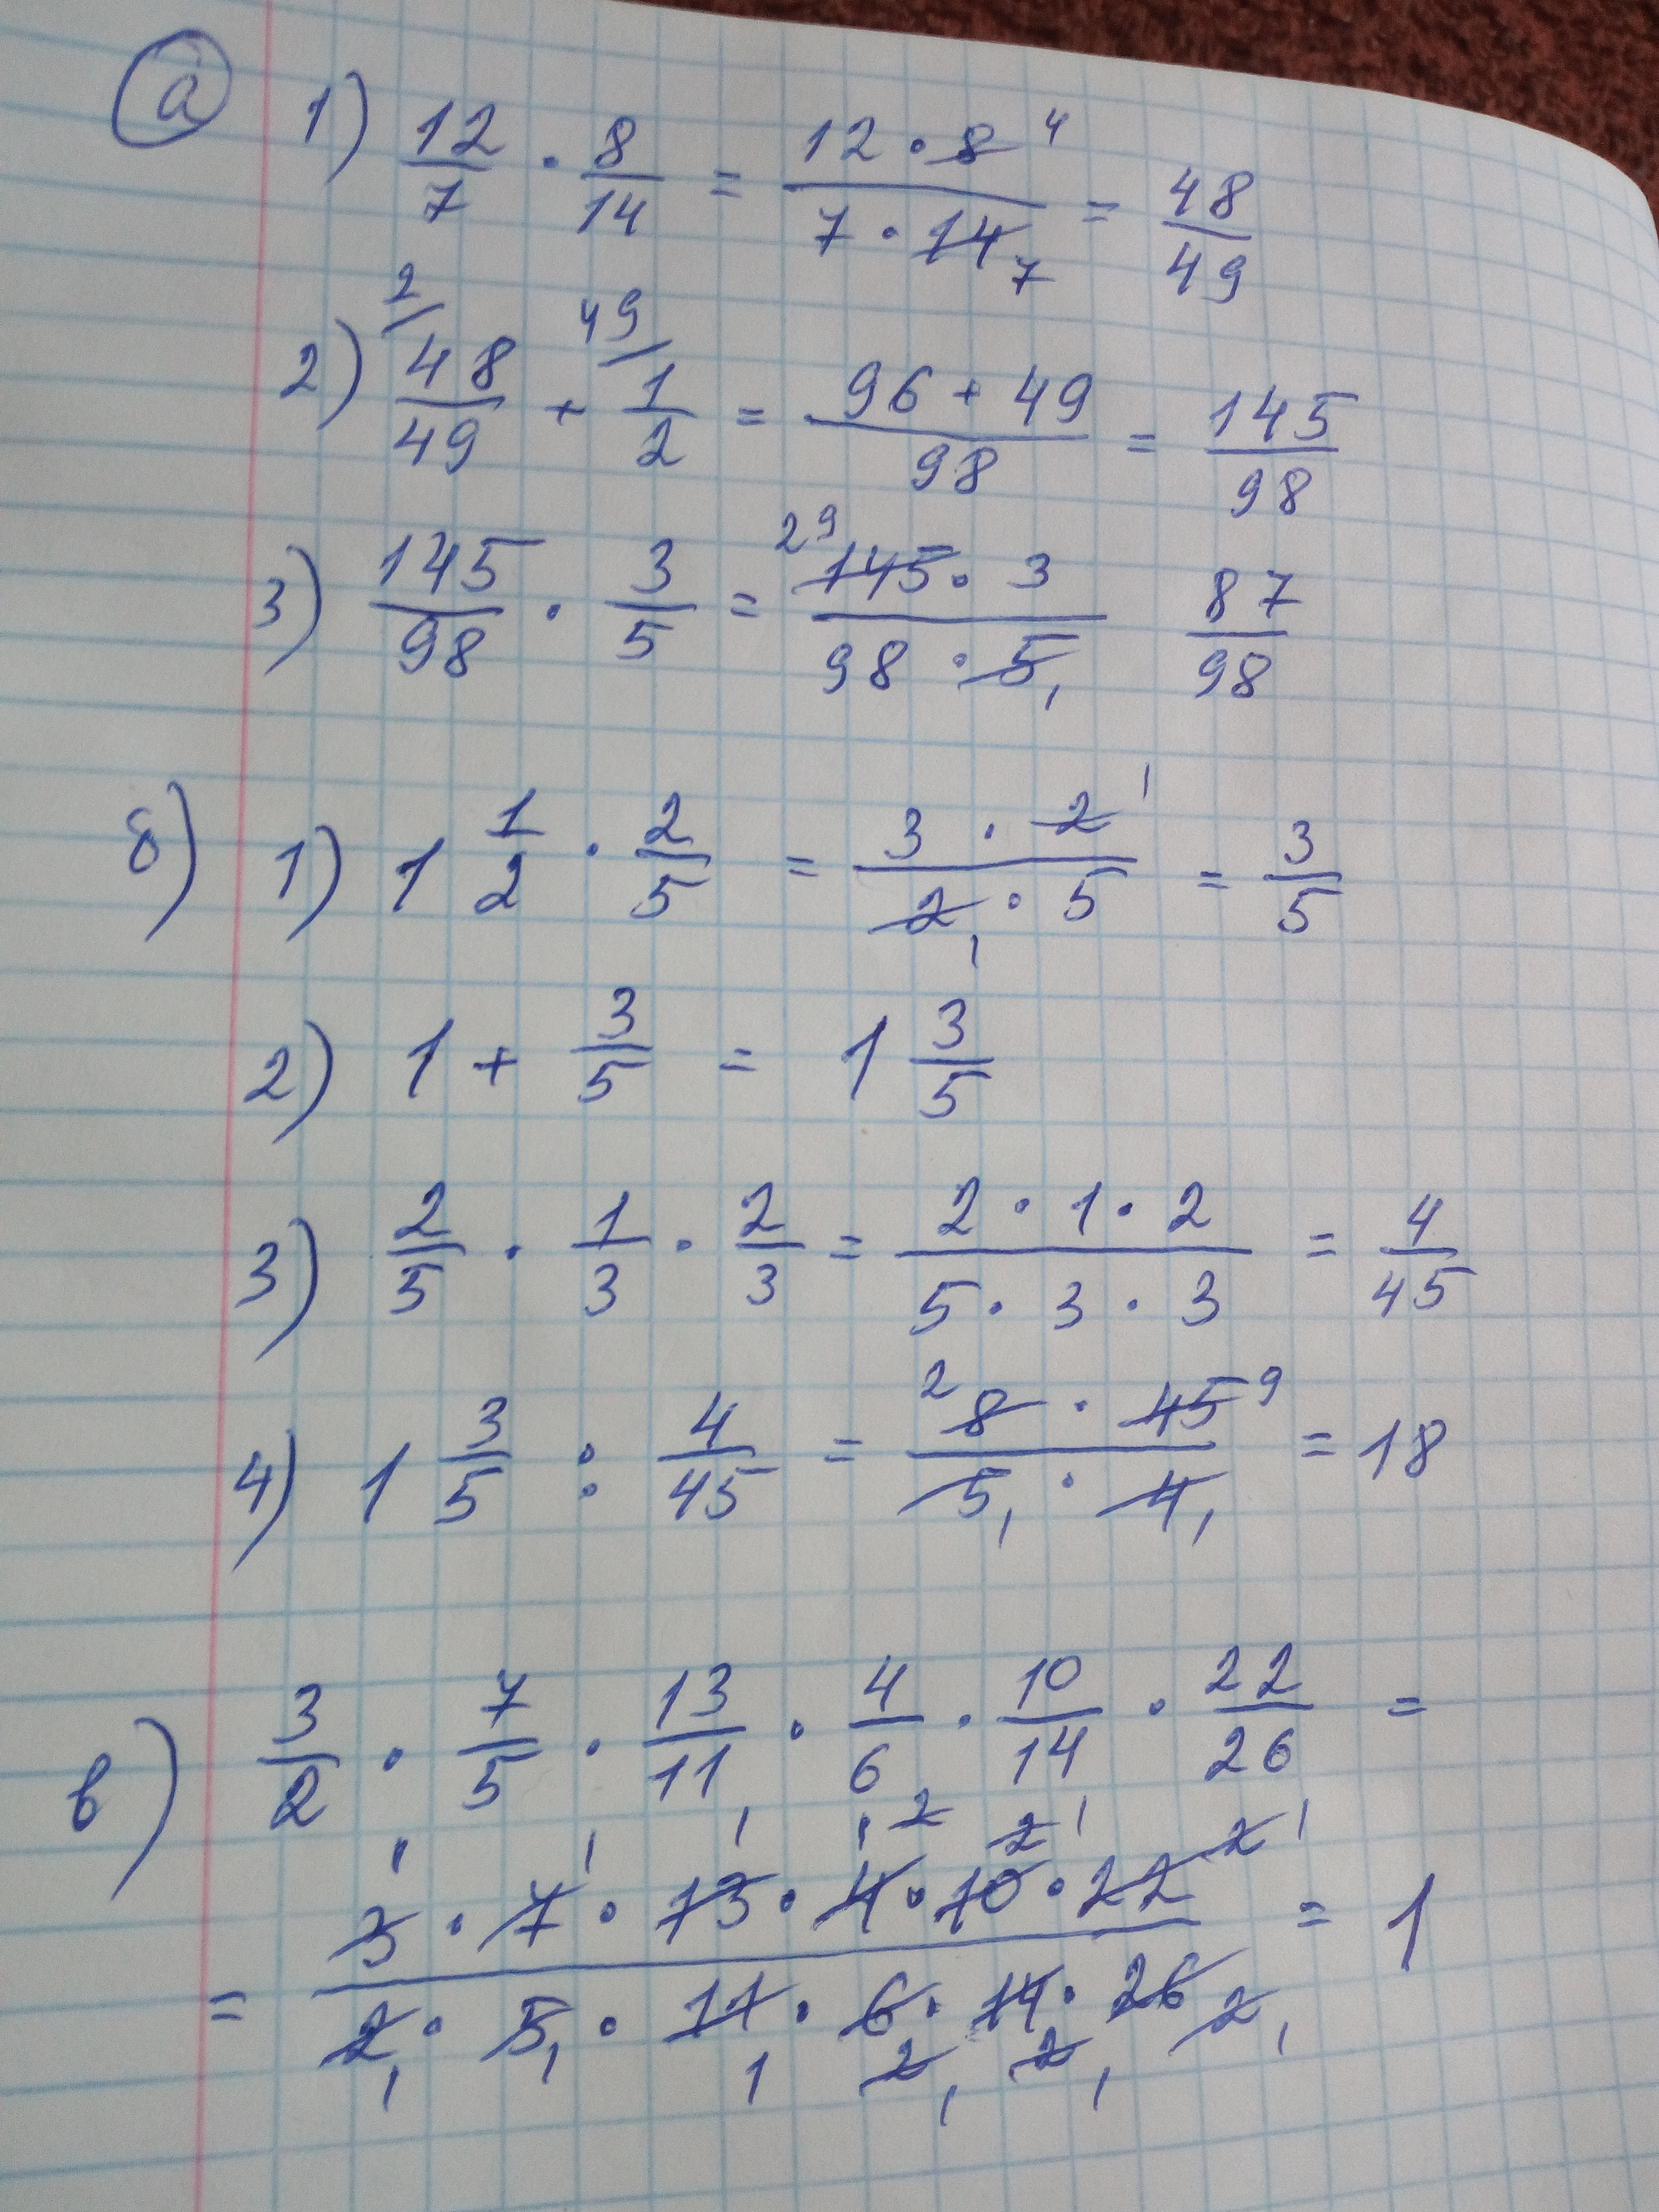 а 1) 12/7 · 8/14 = 12 · 8 4 / 7 · 14 7 = 48/49
2) 2/ 48/49 + 49/ 1/2 = 96 + 49 / 98 = 145/98
3) 145/98 · 3/5 = 29 145 · 3 / 98 · 5 1 87/98
б) 1) 1 1/2 · 2/5 = 3 · 2 1 / 2 1 · 5 = 3/5
2) 1 + 3/5 = 1 3/5
3) 2/5 · 1/3 · 2/3 = 2 · 1 · 2 / 5 · 3 · 3 = 4/45
4) 1 3/5 : 4/45 = 2 8 · 45 9 / 5 1 · 4 1 = 18
в) 3/2 · 7/5 · 13/11 · 4/6 · 10/14 · 22/26 =
= 3 1 · 7 1 · 13 1 · 4 2 1 · 10 2 1 · 22 2 1 / 2 1 · 5 1 · 11 1 · 6 2 1 · 14 2 1 · 26 2 1 = 1